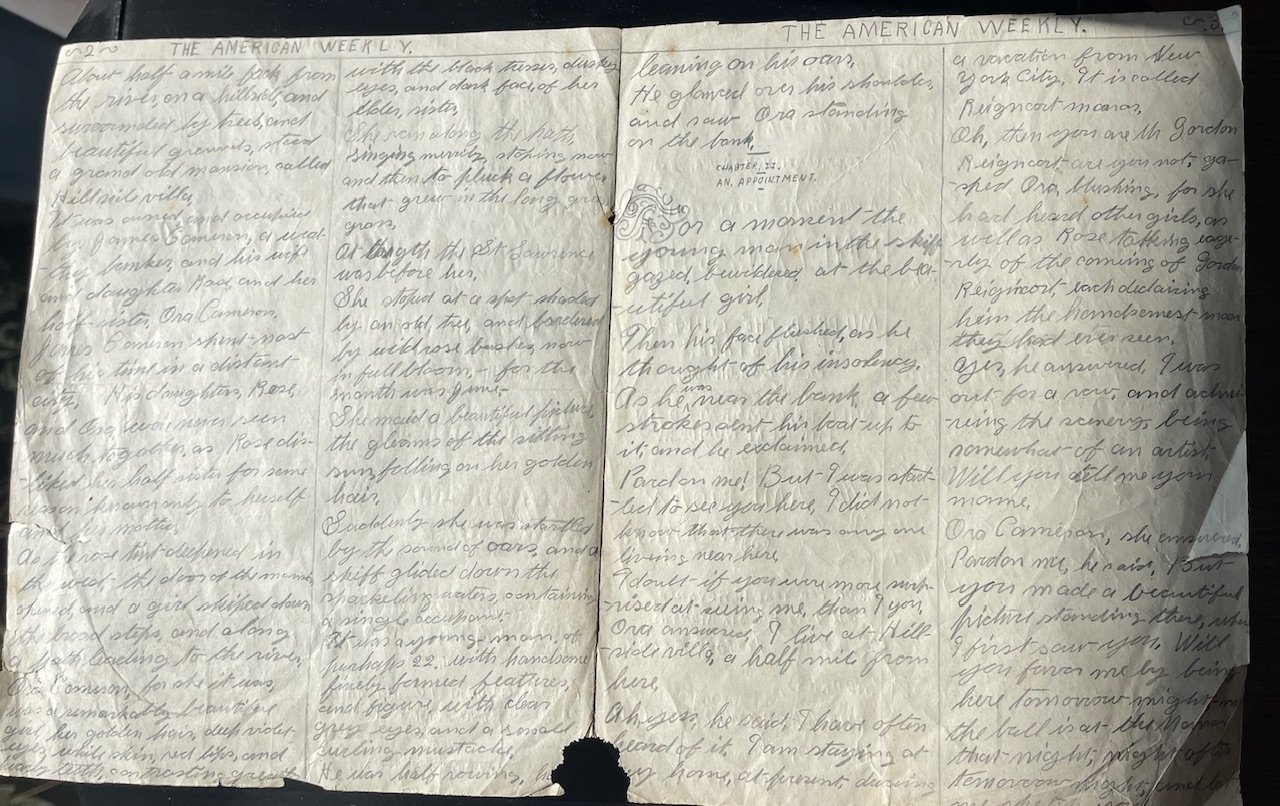 ~2~ THE AMERICAN WEEKLY.
About half a mile back from
the river, on a hillside, and
surrounded by trees, and
beautiful grounds, stood
a grand old mansion, called
Hillside villa,
It was owned, and occupied
by James Cameron, a weal-
thy banker, and his wife
and daughter Rose, and her
half-sister, Ora Cameron,
James Cameron spent most
of his time in a distant
city, His daughters, Rose,
and Ora were never seen
much together, as Rose dis-
-liked her half sister for some
reason known only to herself
and her
As the rose tint deepened in
the west the door of the mansion
opened, and a girl skiped down
the broad steps, and along
a path leading to the river,
Ora Cameron, for she it was,
was a remarkably beautiful
girl, her golden hair, deep violet
eyes, white skin, red lips, and
teeth, contrasting greatly
with the black tresses, dusky
eyes, and dark face, of her
elder, sister,
She ran along the path,
singing merrily, stoping now
and then to pluck a flower
that grew in the long gras
grass,
At length the St Lawrence
was before her,
She stoped at a spot shaded
by an old tree, and bordered
by wild rose bushes, now
in full bloom,- for the
month was June,-
She maid a beautiful picture,
the gleams of the sitting
sun, falling on her golden
hair,
Suddenly she was startled
by the sound of oars, and a
skiff glided down the
sparkeling waters, containing
a single occupant.
It was a young man, of
perhaps 22, with handsome
finely formed features,
and figure, with clear
grey eyes, and a small
curling mustache,
He was half rowing, ha
THE AMERICAN WEEKLY. ~3
leaning on his oars,
He glanced over his shoulder,
and saw Ora standing
on the bank,
CHAPTER, II.
AN, APPOINTMENT.
For a moment the
young man in the skiff
gazed, bewildered, at the bea-
-utiful girl,
Then his face flushed, as he
thought of his insolency.
As he was near the bank a few
strokes sent his boat up to
it, and he exclaimed,
Pardon me! But I was start-
-led to see you here, I did not
know that there was any one
liveing near here
I doubt if you were more surp-
-rised at seeing me, than I you,
Ora answered, I live at Hill-
-side villa, a half mile from
here,
Ah yes, he said, I have often
heard of it, I am staying at
my home, at present, during
a vacation from New
York City, It is called
Reigncort manor,
Oh, then you are Mr Gordon
Reigncort are you not, ga-
-sped Ora, blushing, for she
had heard other girls, as
well as Rose talking eage-
-rly of the coming of Gordon
Reigncort, each declairing
him the handsomest man
they had ever seen,
Yes, he answered, I was
out for a row, and admi-
-ring the scenery, being
somewhat of an artist,
Will you tell me your
name,
Ora Cameron, she answered,
Pardon me, he said, But
you made a beautiful
picture standing there, when
I first saw you, Will
you favor me by being
here tomorrow night
the ball is at the Manor
that night,
tomorrow night,